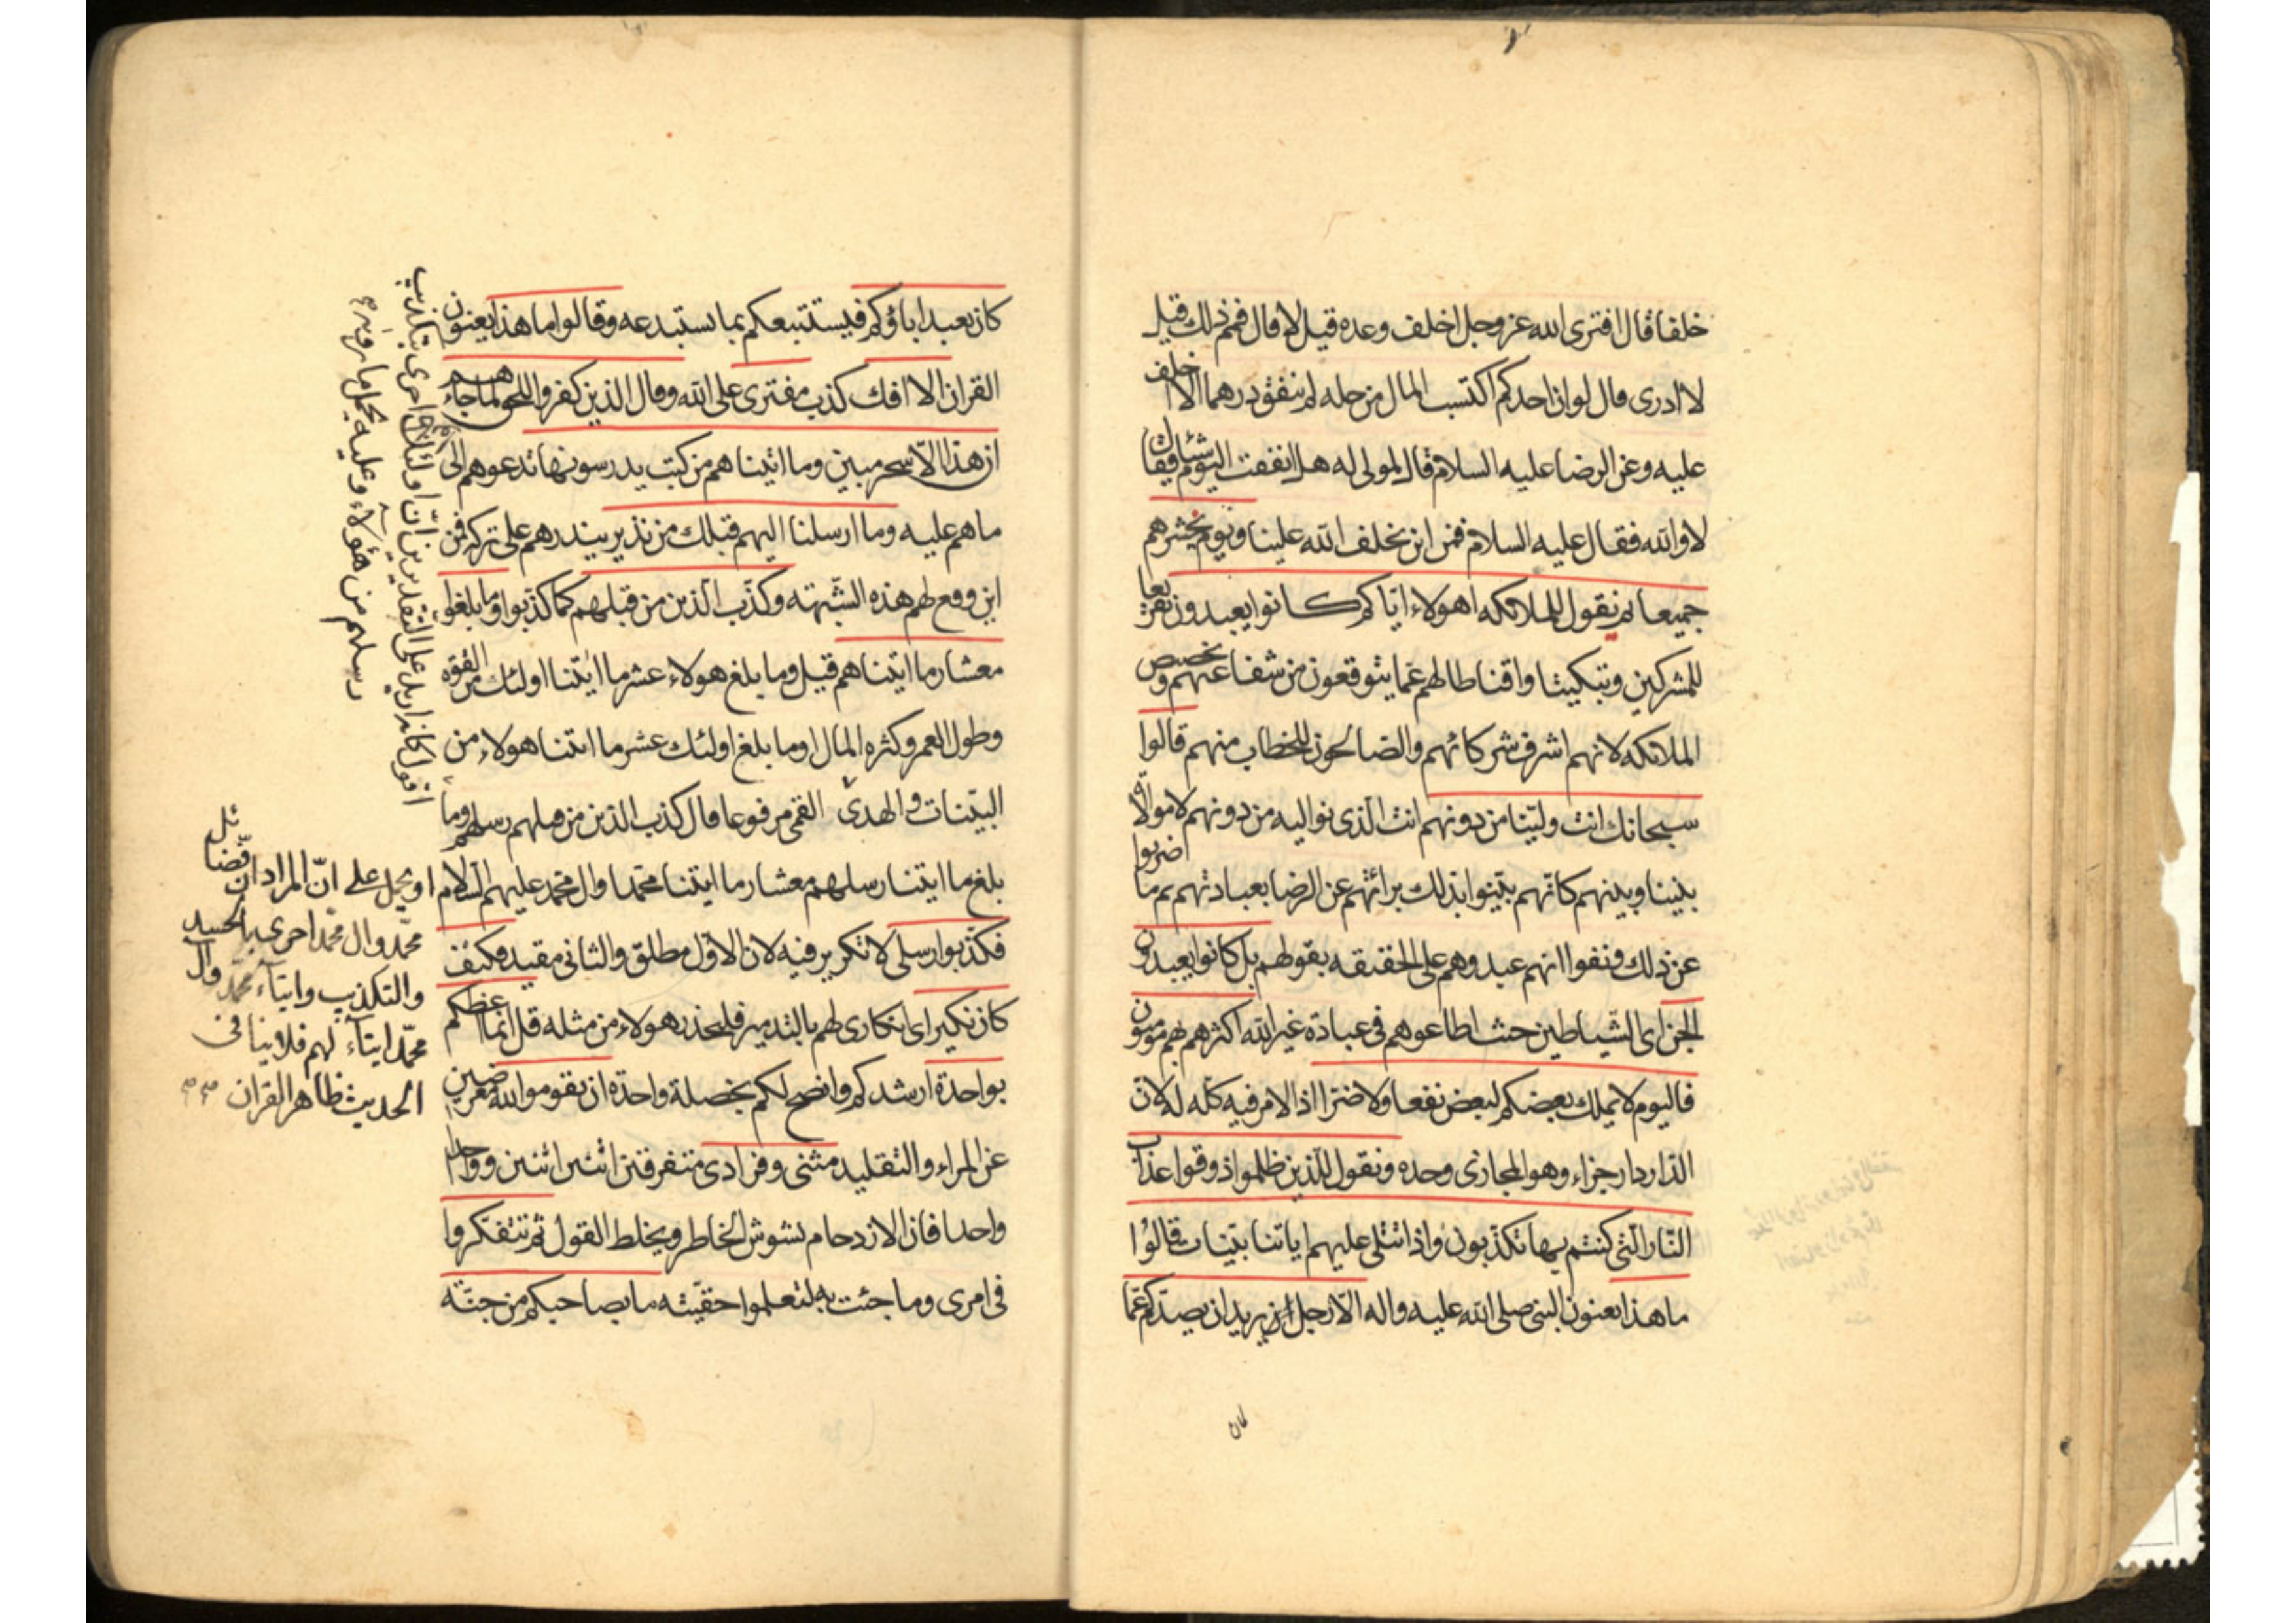 خلفا قال افترى الله عز وجل اخلف وعده قيل لا قال فمم ذلك قيل
لا ادرى قال لو ان احدكم اكتسب المال من حله لم ينفق درهما الا اخلف
عليه وعن الرضا عليه السلام قال لمولى له هل انفقت اليوم شيئا فقال
لا والله فقال عليه السلام فمن اين يخلف الله علينا ويوم نحشرهم
جميعا ثم نقول للملائكه اهولاء اياكم كانوا يعبدون تقريعا
للمشركين وتبكيتا واقناطا لهم عما يتوقعون من شفاعتهم وتخصيص
الملائكه لانهم اشرف شركائهم والصالحون للخطاب منهم قالوا
سبحانك انت ولينا من دونهم انت الذى نواليه من دونهم لا موالاة
بيننا وبينهم كانهم بينوا بذلك برائتهم عن الرضا بعبادتهم ثم اضربوا
عن ذلك ونفوا انهم عبدوهم على الحقيقه بقولهم بل كانوا يعبدون
الجن اى الشياطين حيث اطاعوهم فى عبادة غير الله اكثرهم بهم مؤمنون
فاليوم لا يملك بعضكم لبعض نفعا ولا ضرا اذ الامر فيه كله له لان
الدار دار جزاء وهو المجازى وحده ونقول للذين ظلموا ذوقوا عذاب
النار التى كنتم بها تكذبون واذا تتلى عليهم اياتنا بينات قالوا
ما هذا يعنون النبى صلى الله عليه واله الا رجل يريد ان يصدكم عما
كان يعبد اباؤكم فيستتبعكم بما يستبدعه وقالوا ما هذا يعنون
القران الا افك كذب مفترى على الله وقال الذين كفروا للحق لما جاءهم
ان هذا الا سحر مبين وما اتيناهم من كتب يدرسونها تدعوهم الى
ما هم عليه وما ارسلنا اليهم قبلك من نذير ينذرهم على تركه فمن
اين وقع لهم هذه الشبهته وكذب الذين من قبلهم كما كذبوا وما بلغوا
معشار ما اتيناهم قيل وما بلغ هولاء عشر ما اتينا اولئك من القوه
وطول العمر وكثره المال او ما بلغ اولئك عشر ما اتينا هولاء من
البينات والهدى القمى مرفوعا قال كذب الذين من قبلهم رسلهم وما
بلغ ما اتينا رسلهم معشار ما اتينا محمدا وال محمد عليهم السلام
فكذبوا رسلى لا تكرير فيه لان الاول مطلق والثانى مقيد فكيف
كان نكير اى انكارى لهم بالتدمير فليحذر هولاء من مثله قل انما اعظكم
بواحدة ارشدكم وانصح لكم بخصلة واحدة ان تقوموا لله معرضين
عن المراء والتقليد مثنى وفرادى متفرقين اثنين اثنين وواحدا
واحدا فان الازدحام يشوش الخاطر ويخلط القول ثم تتفكروا
فى امرى وما جئت به لتعلموا حقيته ما بصاحبكم من جنة
اقول كانه اريد على التقديرين ان اولئك احرى بتكذيب
رسلهم من هؤلاء وعليه يحمل ما
او يحمل على ان المراد ان فضائل
محمد وال محمد احرى بالحسد
والتكذيب وايتاء محمد وال
محمد ايتاء لهم فلا ينافى
الحديث ظاهر القران